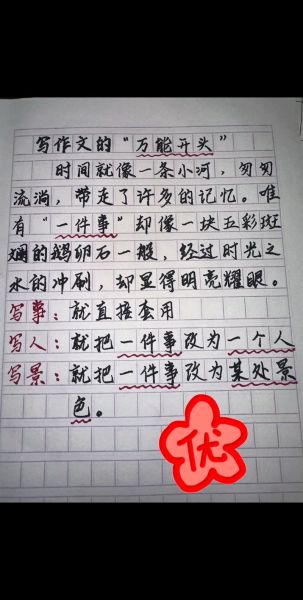 写作文的“万能开头”
时间就像一条小河，匆匆
流淌，带走了许多的记忆。唯
有“一件事”却像一块五彩斑
斓的鹅卵石一般，经过时光之
水的冲刷，却显得明亮耀眼。
写事：就直接套用
写人：就把一件事改为一个人
写景：就把一件事改为某处景
色。
优